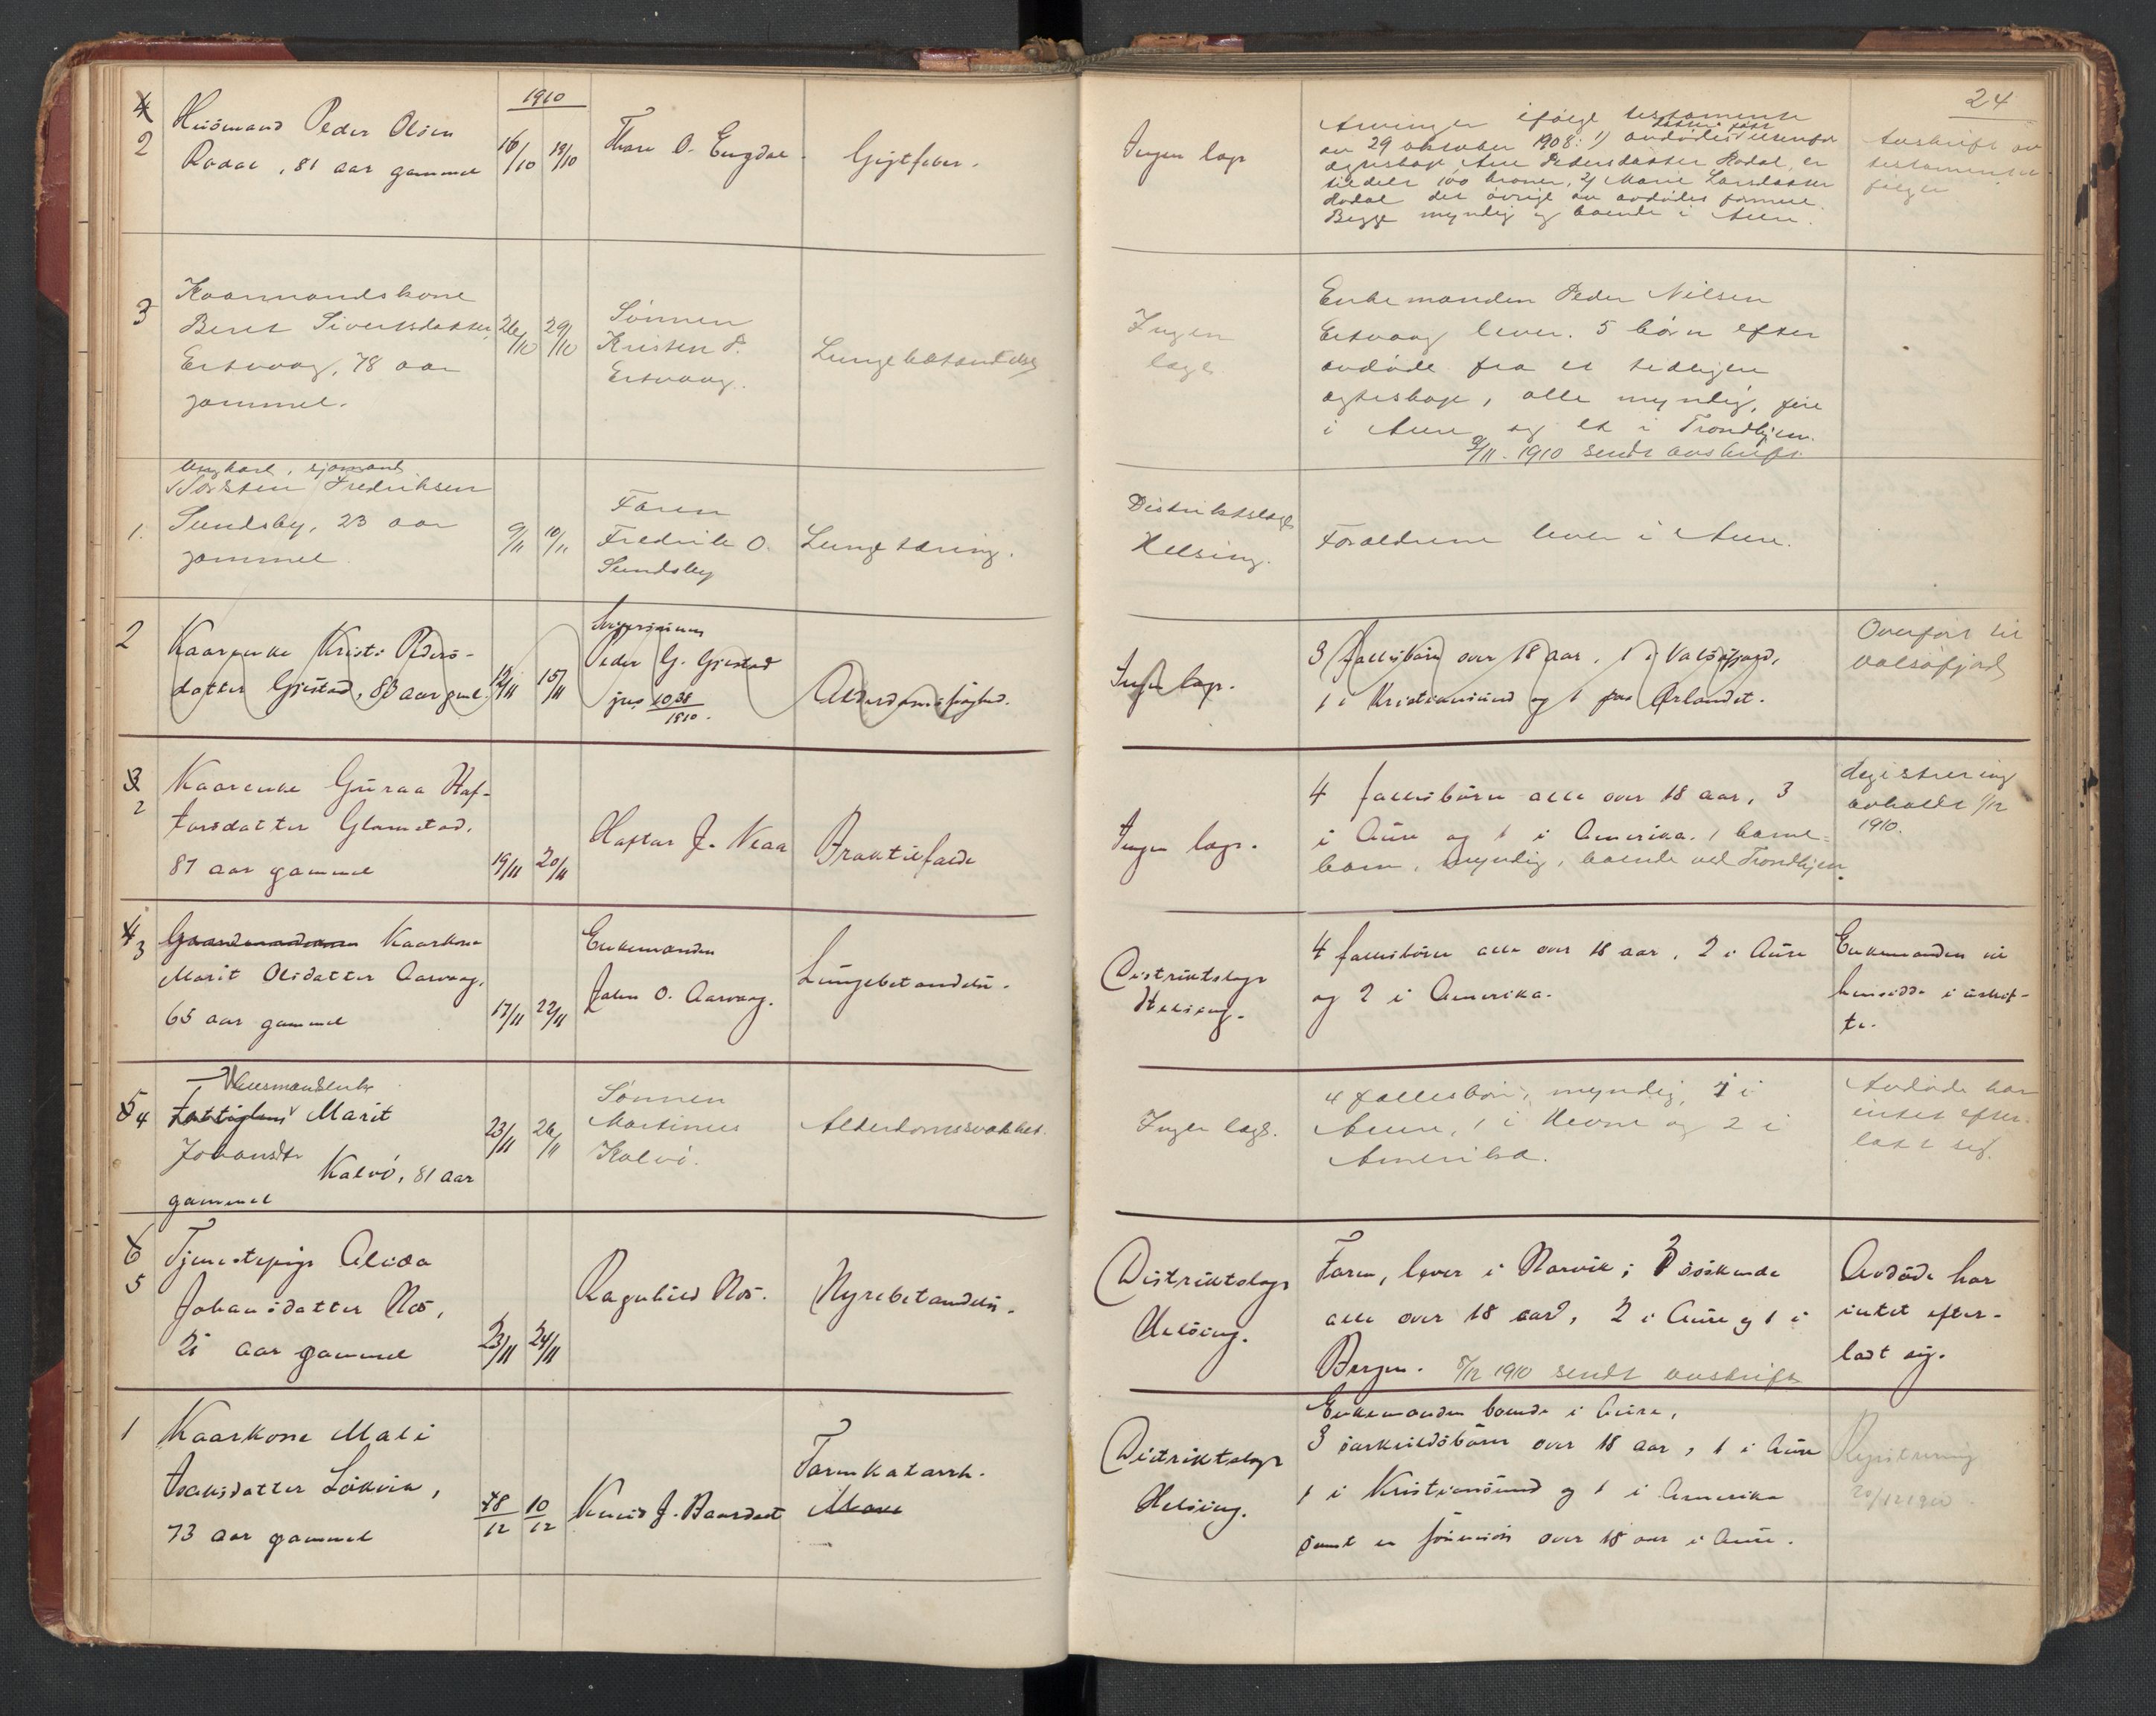 1910
24
4
2
Husmand Peder Olsen
Rodal, 81 aar gammel
16/10 18/10
Thore O. Engdal.
Gigtfeber.
Ingen læge
Arvinger ifølge testamente
av 29 oktober 1908: 1) avdødes datter født utenfor
egteskap, Ane Pedersdatter Rodal, er
tildelt 100 kroner, 2) Marie Larsdatter
Rodal det øvrige av avdødes formue.
Begge myndig og boende i Aure.
Avskrift av
testamentet
følger
3
Kaarmandskone
Beret Sivertsdatter
Ertvaag, 78 aar
gammel.
26/10 29/10
Sønnen
Kristen P.
Ertvaag.
Lungebetændelse
Ingen
læge.
Enkemanden Peder Nilsen
Ertvaag lever. 5 børn efter
avdøde fra et tidligere
egteskap, alle myndig, fire
i Aure og et i Trondhjem.
9/11 1910 sendt avskrift.
1.
Ungkarl, sjømand
Torsten Fredriksen
Sundsby, 23 aar
gammel
9/11 10/11
Faren
Fredrik O.
Sundsby
Lungetæring.
Distriktslæge
Helsing.
Forældrene lever i Aure.
2
Kaarenke Kristi Peders-
datter Gjestad, 83 aar gml.
12/11 15/11
Peder G. Gjestad
Alderdomssvaghed.
Ingen læge.
3 fællesbørn over 18 aar, 1 i Valsøfjord,
1 i Kristiansund og 1 paa Ørlandet.
Overført til
Valsøfjord
3
2
Kaarenke Guraa Haf-
torsdatter Glamstad.
87 aar gammel
19/11 20/11
Haftor J. Neaa
Braatilfælde
Ingen læge.
4 fællesbørn alle over 18 aar, 3
i Aure og 1 i Amerika. 1 barne-
barn, myndig, boende ved Trondhjem.
Registrering
avholdt 1/12
1910.
4
3
Kaarkone
Marit Olsdatter Aarvaag.
65 aar gammel
17/11 22/11
Enkemanden
John O. Aarvaag.
Lungebetændelse.
Distriktslæge
Helsing.
4 fællesbørn alle over 18 aar, 2 i Aure
og 2 i Amerika.
Enkemanden vil
hensidde i uskif-
te.
5
4
Husmandsenke
Fattiglem Marit
Johansdtr
Kalvø, 81 aar
gammel
23/11 26/11
Sønnen
Martinus
Kalvø.
Alderdomssvakhet.
Ingen læge.
4 fællesbørn, myndig, 1 i
Aure, 1 i Hevne og 2 i
Amerika.
Avdøde har
intet efter-
latt sig.
6
5
Tjenestepige Alida
Johansdatter Nos,
21 aar gammel
23/11 24/11
Ragnhild Nos.
Nyrebetændelse.
Distriktslæge
Helsing.
Faren, lever i Narvik; 3 søskende
alle over 18 aar, 2 i Aure og 1 i
Bergen. 8/12 1910 sendt avskrift
Avdøde har
intet efter-
ladt sig.
1
Kaarkone Mali
Isaksdatter Løkvik,
73 aar gammel
8/12 10/12
Knud J. Baardset
Tarmkatarrh.
Distriktslæge
Helsing.
Enkemanden boende i Aure,
3 særkuldsbørn over 18 aar, 1 i Aure
1 i Kristiansund og 1 i Amerika
samt en sønnesøn over 18 aar i Aure.
Registrering
20/12 1910.